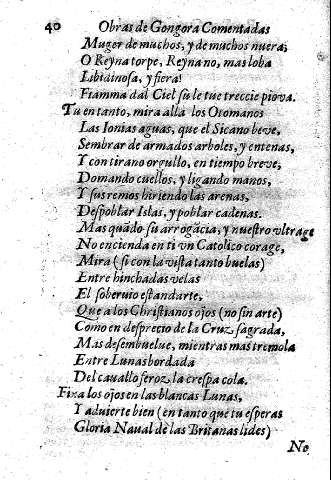 40 Obras de Gongora Comentadas
Muger de muchos, y de muchos nuera,
O Reyna torpe, Reyna no, mas loba
Libidinosa, y fiera!
Fiamma dal Ciel su le tue treccie piova.
Tu en tanto, mira allà los Otomanos
Las Ionias aguas, que el Sicano beve,
Sembrar de armados arboles, y entenas,
Y con tirano orgullo, en tiempo breve,
Domando cuellos, y ligando manos,
Y sus remos hiriendo las arenas,
Despoblar Islas, y poblar cadenas.
Mas quãdo su arrogacia, y nuestro vltrage
No encienda en ti vn Catolico corage,
Mira (si con la vista tanto buelas)
Entre hinchadas velas
El soberuio estandarte,
Que a los Christianos ojos (no sin arte)
Como en desprecio de la Cruz sagrada,
Mas desembuelue, mientras mas tremola
Entre Lunas bordada
Del cauallo feroz la crespa cola.
Fixa los ojos en las blancas Lunas,
Y aduierte bien (en tanto que tu esperas
Gloria Naual de las Britanas lides)
No